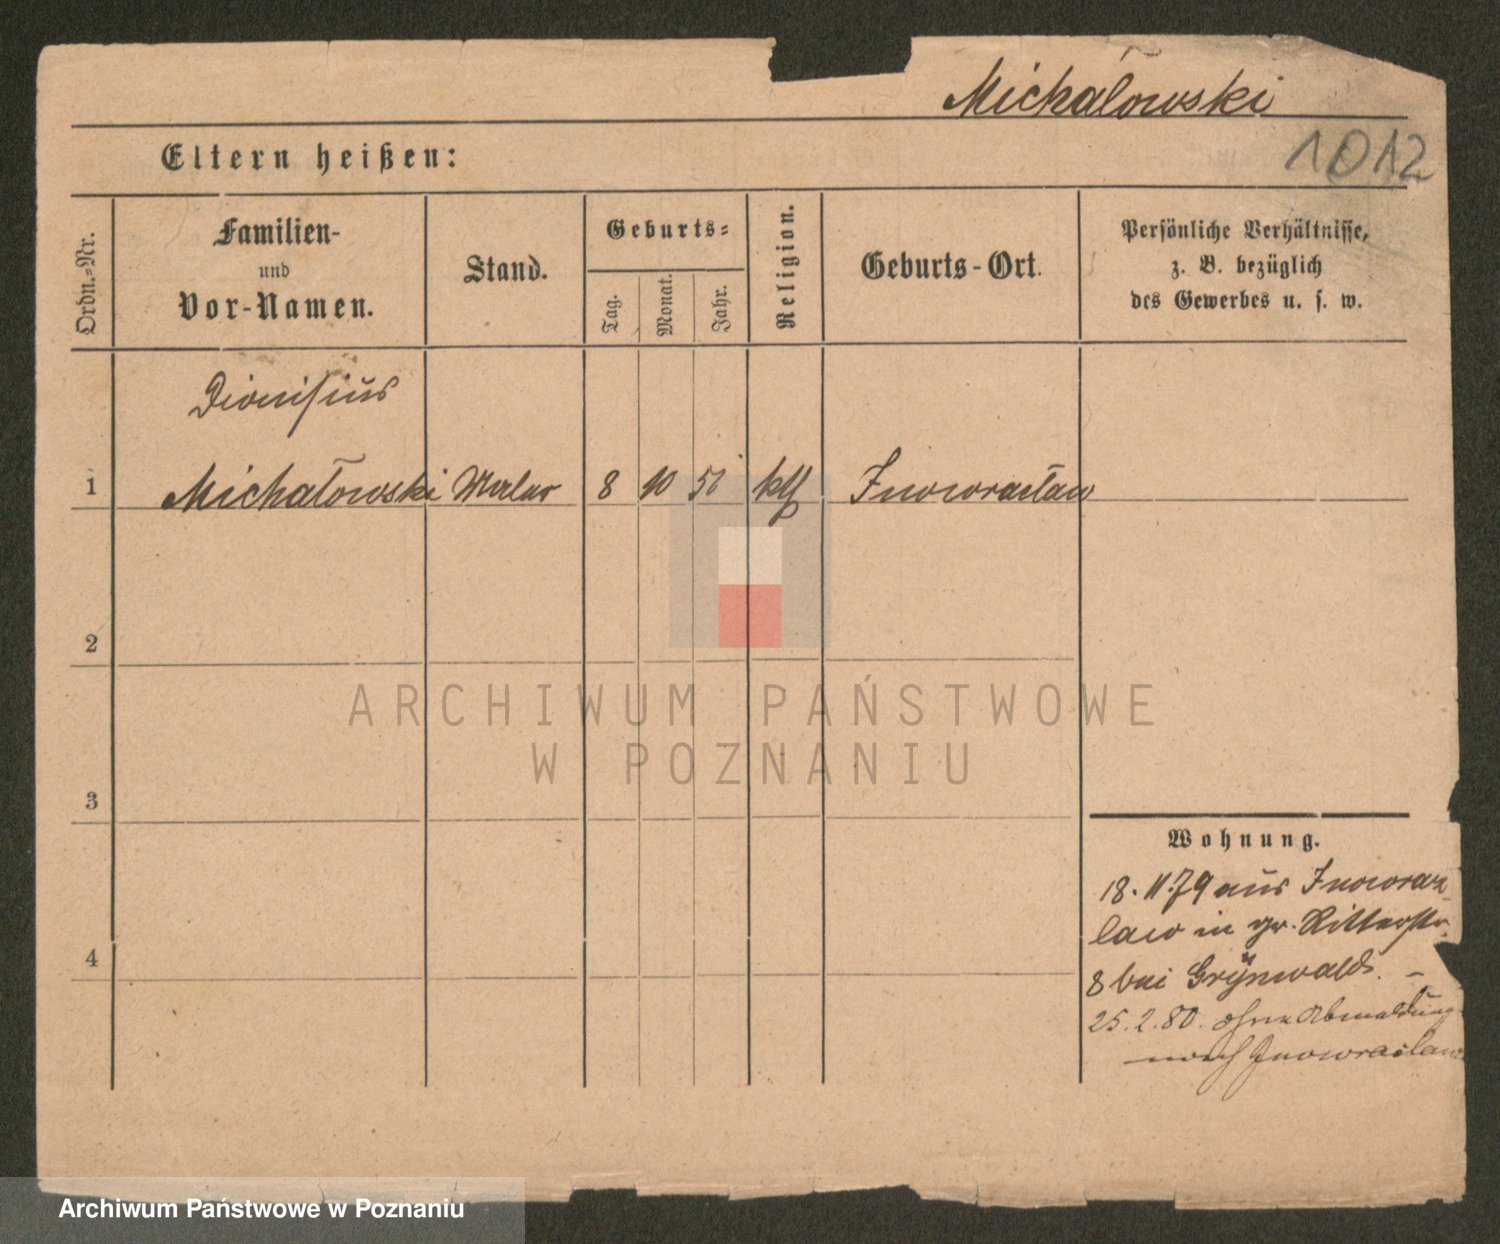 Michałowski
1012
Eltern heißen:
Ordn.-Nr.
Familien-
und
Vor-Namen.
Stand.
Geburts-
Tag.
Monat.
Jahr.
Religion.
Geburts-Ort.
Persönliche Verhältnisse,
z. B. bezüglich
des Gewerbes u. s. w.
Dionisius
1 Michałowski Maler 8 10 51 kth Inowracław
2
3
4
ARCHIWUM PAŃSTWOWE
W POZNANIU
Wohnung.
18. 11. 79 aus Inowraz-
law in gr. Ritterstr.
8 bei Grynwald. -
25. 2. 80. ohne Abmeldung
nach Inowraclaw
Archiwum Państwowe w Poznaniu